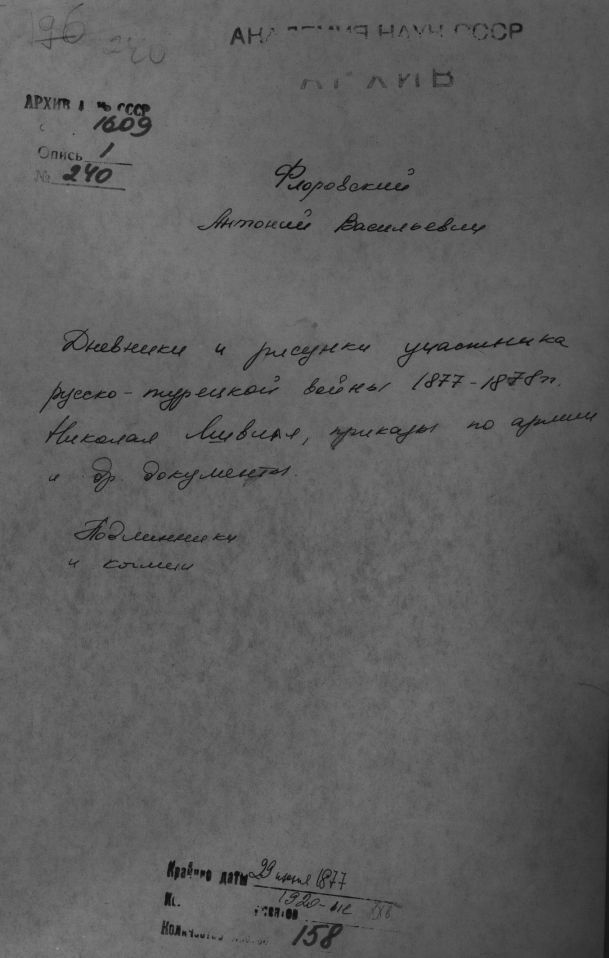 196 240
АКАДЕМИЯ НАУК СССР
АРХИВ
АРХИВ АН СССР
1609
Опись 1
№ 240
Флоровский
Антоний Васильевич
Дневники и рисунки участника
русско-турецкой войны 1877-1878гг.
Николая, приказы по армии
и др. документы.
Подлинники
и копии
Крайние даты 29 июня 1877
1920-ые
Количество листов 158